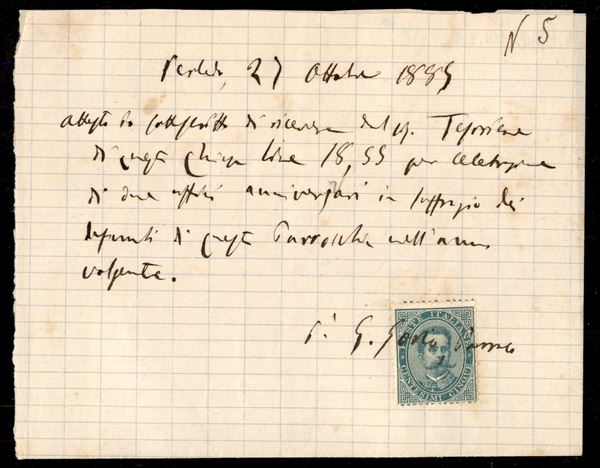 N 5
Perledo, 27 Ottobre 1885
attesto io sottoscritto di ricevere dal sig. Tesoriere
di questa Chiesa Lire 18,55 per celebrazione
di due uffici anniversari in suffragio dei
defunti di questa Parrocchia nell'anno
volgente.
P. G. Parroco
POSTE ITALIANE
CENTESIMI CINQUE